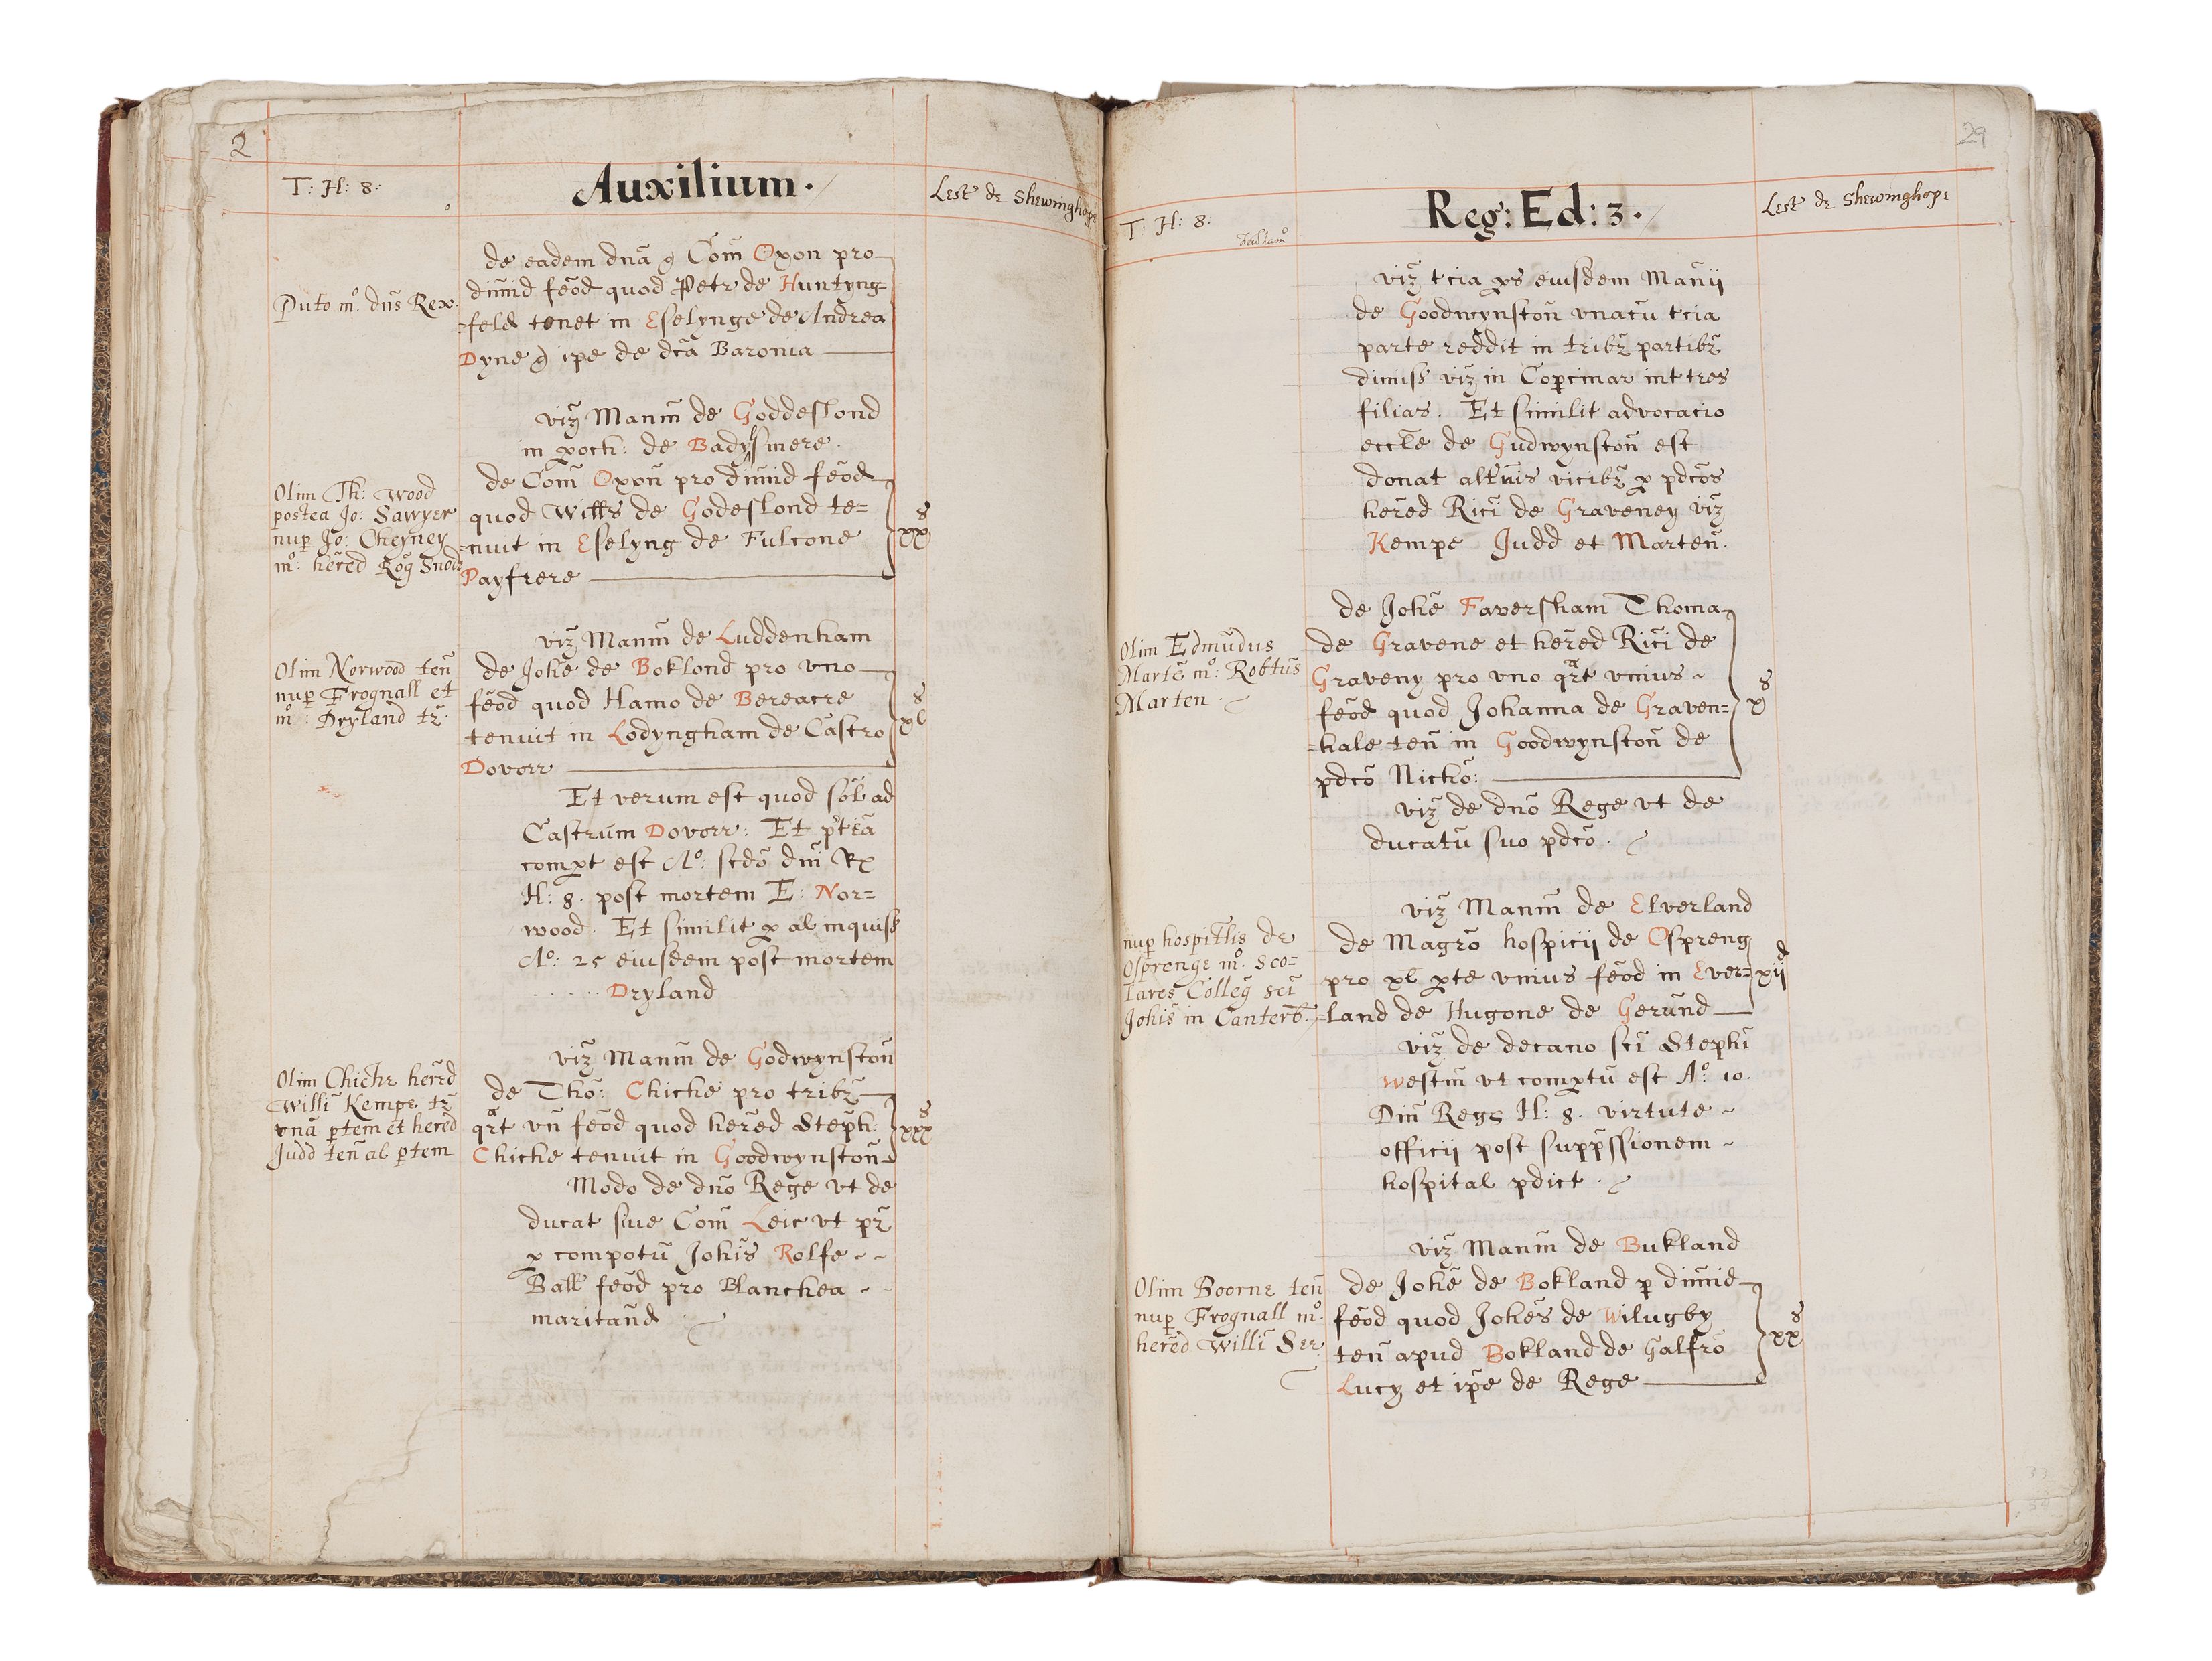 2
T: H: 8:
Auxilium.
Lest de Shewinghope
de eadem dnā & Com̄ Oxon pro
Puto mo. dn̄s Rex.
dimid feod quod Petr de Huntyng=
=feld tenet in Eselynge de Andrea
Dyne & ipe de dcā Baronia
viz Man̄m de Goddeslond
in poch: de Badylsmere.
de Com̄ Oxon̄ pro dimid feod
Olim Th: Wood
postea Jo: Sawyer
nup Jo: Cheyney
mo: hered Rog Snode
quod Wills de Godeslond te=
=nuit in Eselyng de Fulcone
Payfrere
s
xx
viz Man̄m de Luddenham
Olim Norwood ten̄
nup Frognall et
mo: Dryland tz.
de Johē de Boklond pro vno
feod quod Hamo de Bereacre
tenuit in Lodyngham de Castro
Dovorr
s
xl
Et verum est quod sol ad
Castrum Dovorr: Et p'tea
compt est Ao: scdō dn̄i Rx
H: 8. post mortem E: Nor=
wood. Et similit p al inquiss
Ao: 25 eiusdem post mortem
..... Dryland
viz Man̄m de Godwynston̄
Olim Chiche hered
Willi Kempe tz
vnā ptem et hered
Judd ten̄ al ptem
de Thō: Chiche pro tribz
qart vn̄ feod quod hered Steph:
Chiche tenuit in Goodwynston̄
s
xxx
Modo de dnō Rege vt de
ducat sive Com̄ Leic vt pz
p compotū Johis Rolfe
Ball feod pro Blanchea
maritand
29
T: H: 8:
Reg: Ed: 3.
Lest de Shewinghope
viz tcia ps eiusdem Man̄ij
de Goodwynston̄ vnacu tcia
parte reddit in tribz partibz
dimiss viz in Copcinar int tres
filias. Et similit advocatio
eccle de Gudwynston̄ est
donat altnis vicibz p pdcos
hered Rici de Graveney viz
Kempe Judd et Marten̄.
de Johē Faversham Thoma
Olim Edmūdus
Martē mo: Robtus
Marten.
de Gravene et hered Rici de
Graveny pro vno qart vnius
feod quod Johanna de Graven=
=hale ten̄ in Goodwynston̄ de
pdcō Nichō:
s
x
viz de dnō Rege vt de
ducatū suo pdcō.
viz Man̄m de Elverland
nup hospitlis de
Osprenge mo. Sco=
lares Colleg sci
Johis in Canterb.
de Magrō hospicij de Ospreng
pro xl pte vnius feod in Ever=
=land de Hugone de Gerund
d
xij
viz de decano sci Stephi
Westm̄ vt comptū est Ao: 10.
Dn̄i Regs H: 8. virtute
officij post suppssionem
hospital pdict.
viz Man̄m de Bukland
Olim Boorne ten̄
nup Frognall mo.
hered Willi Ser
de Johē de Bokland p dimid
feod quod Johes de Wilugby
ten̄ apud Bokland de Galfrō
Lucy et ipe de Rege
s
xx